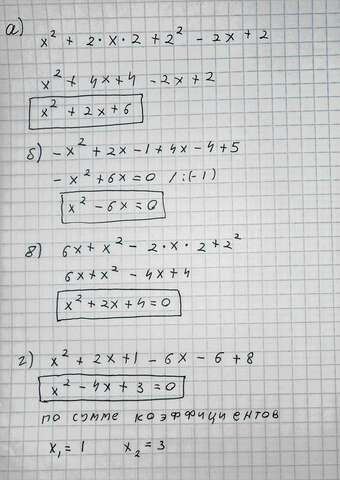 а) x² + 2·x·2 + 2² - 2x + 2
x² + 4x + 4 - 2x + 2
x² + 2x + 6
б) -x² + 2x - 1 + 4x - 4 + 5
- x² + 6x = 0 /:(-1)
x² - 6x = 0
в) 6x + x² - 2·x·2 + 2²
6x + x² - 4x + 4
x² + 2x + 4 = 0
г) x² + 2x + 1 - 6x - 6 + 8
x² - 4x + 3 = 0
по сумме коэффициентов
x₁ = 1 x₂ = 3